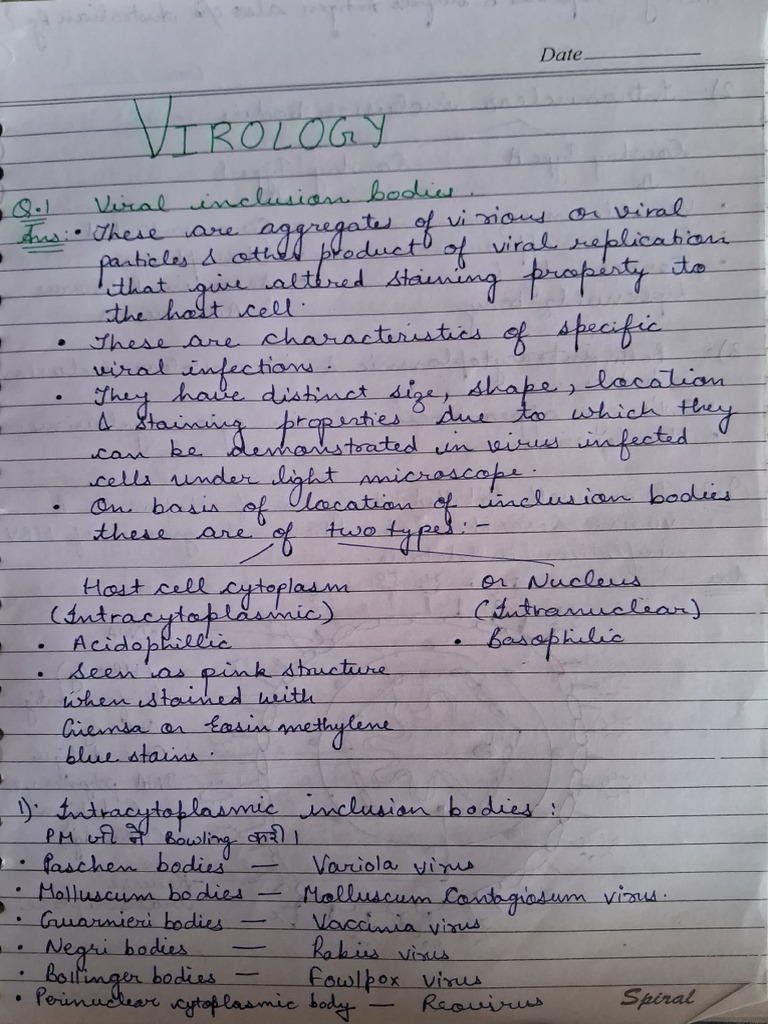 Date
VIROLOGY
Q.1 Viral inclusion bodies.
Ans:• These are aggregates of virious or viral
particles & other product of viral replication
that give altered staining property to
the host cell.
• These are characteristics of specific
viral infections.
• They have distinct size, shape, location
& staining properties due to which they
can be demonstrated in virus infected
cells under light microscope.
• On basis of location of inclusion bodies
these are of two types:-
Host cell cytoplasm or Nucleus
(Intracytoplasmic) (Intranuclear)
• Acidophillic • Basophilic
• Seen as pink structure
when stained with
Giemsa or Eosin methylene
blue stains.
1). Intracytoplasmic inclusion bodies:
PM जी ने Bowling करी।
• Paschen bodies — Variola virus
• Molluscum bodies — Molluscum Contagiosum virus.
• Guarnieri bodies — Vaccinia virus
• Negri bodies — Rabies virus
• Bollinger bodies — Fowlpox virus
• Perinuclear cytoplasmic body — Reovirus
Spiral